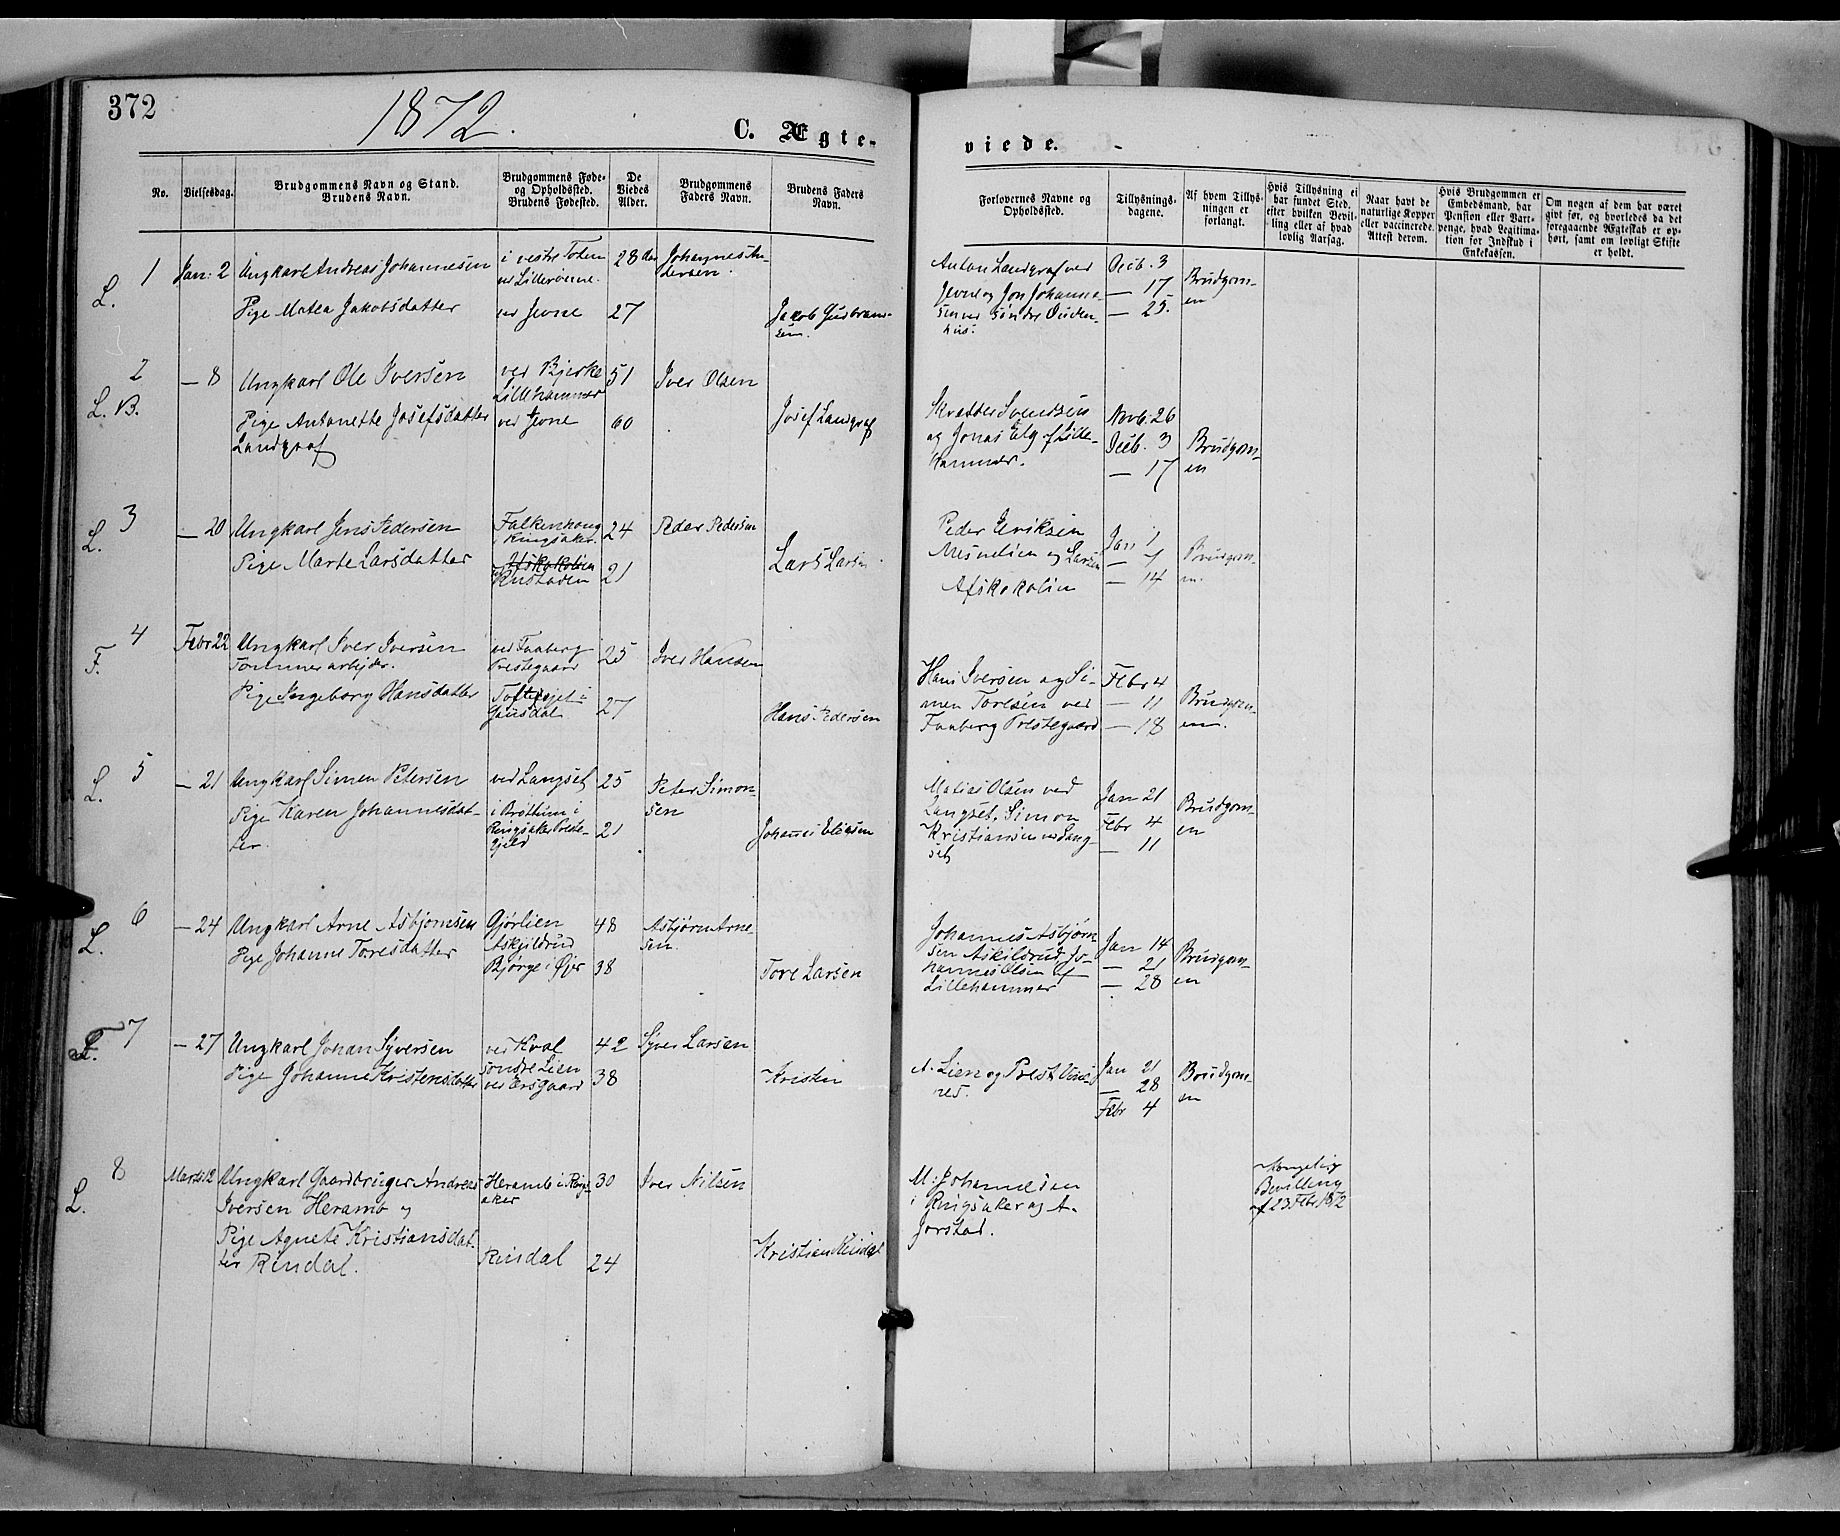 372
1872.
C. Ægte-
viede.
No.
Vielsesdag.
Brudgommens Navn og Stand.
Brudens Navn.
Brudgommens Føde-
og Opholdssted.
Brudens Fødested.
De
Viedes
Alder.
Brudgommens
Faders Navn.
Brudens Faders
Navn.
Forlovernes Navne og
Opholdssted.
Tillysnings-
dagene.
Af hvem Tillys-
ningen er
forlangt.
Hvis Tillysning ei
har fundet Sted,
efter hvilken Bevil-
ling eller af hvad
lovlig Aarsag.
Naar havt de
naturlige Kopper
eller vaccinerede.
Attest derom.
Hvis Brudgommen er
Embedsmand, har
Pension eller Vart-
penge, hvad Legitima-
tion for Indskud i
Enkekassen.
Om nogen af dem har været
givt før, og hvorledes da det
foregaaende Ægteskab er op-
hørt, samt om lovligt Skifte
er holdt.
1
L.
Jan: 2
Ungkarl Andreas Johannesen
Pige Matea Jakobsdatter
i vestre Toten
ved Jevne
28
27
Johannes An-
dersen.
Jakob Gudbrand-
sen.
Anton Landgraf ved
Jevne og Jon Johanne-
sen ved søndre
Decb. 3
— 17
— 25.
Brudgom-
en
2
L. B.
— 8
Ungkarl Ole Iversen
Pige Antonette Josefsdatter
Landgraf
ved Bjerke
Lillehammer
ved Jevne
51
60
Iver Olsen
Josef Landgraf
Skrædder Svendsen
og Jonas Elg af Lille-
hammer.
Novb. 26
Decb. 3
— 17
Brudgom-
en
3
L.
— 20
Ungkarl Jens Pedersen
Pige Marte Larsdatter
Falkenhoug
i Ringsaker.
Rustaden
24
21
Peder Pedersen
Lars Larsen
Peder Eriksen
Mesnelien og Larsen
Afskokolien
Jan 1
— 7
— 14
Brudgom-
en.
4
F.
Febr 22
Ungkarl Iver Iversen
Tømmerarbejder.
Pige Ingeborg Hansdatter
ved Faaberg
Prestegaard
i
Gausdal
25
27
Iver Hansen
Hans Pedersen
Hans Iversen og Si-
men Toresen ved
Faaberg Prestegaard
Febr 4
— 11
— 18
Brudgom-
en.
5
L.
— 21
Ungkarl Simen Petersen
Pige Karen Johannesdat-
ter.
ved Langset
i Brøttum i
Ringsaker Preste-
gjeld
25
21
Peter Simon-
sen
Johannes Eliasen
Matias Olsen ved
Langset, Simon
Kristiansen ved Lang-
set
Jan 21
Febr 4
— 11
Brudgom-
en
6
L.
— 24
Ungkarl Arne Asbjørnsen
Pige Johanne Toresdatter
Gjørlien
Askjildrud
Bjørge i Øjer
48
38
Asbjørn Arne-
sen.
Tore Larsen
Johannes Asbjørn-
sen Askildrud, Jo-
hannes Olsen af
Lillehammer
Jan 14
— 21
— 28
Brudgom-
en
7
F.
— 27
Ungkarl Johan Syversen
Pige Johanne Kristensdatter
ved Hval
søndre Lien
ved Ersgaard
42
38
Syver Larsen
Kristen
A. Lien og Prest
Jan 21
— 28
Febr 4
Brudgom-
en
8
L.
Marts 12
Ungkarl Gaardbruger Andreas
Iversen Heramb og
Pige Agnete Kristiansdat-
ter Rindal.
Heramb i Ring-
saker
Rindal
30
24
Iver Nilsen
Kristian Rindal
M. Johannesen
i Ringsaker og A.
Jørstad.
Kongelig
Bevilling
af 23 Febr 1872